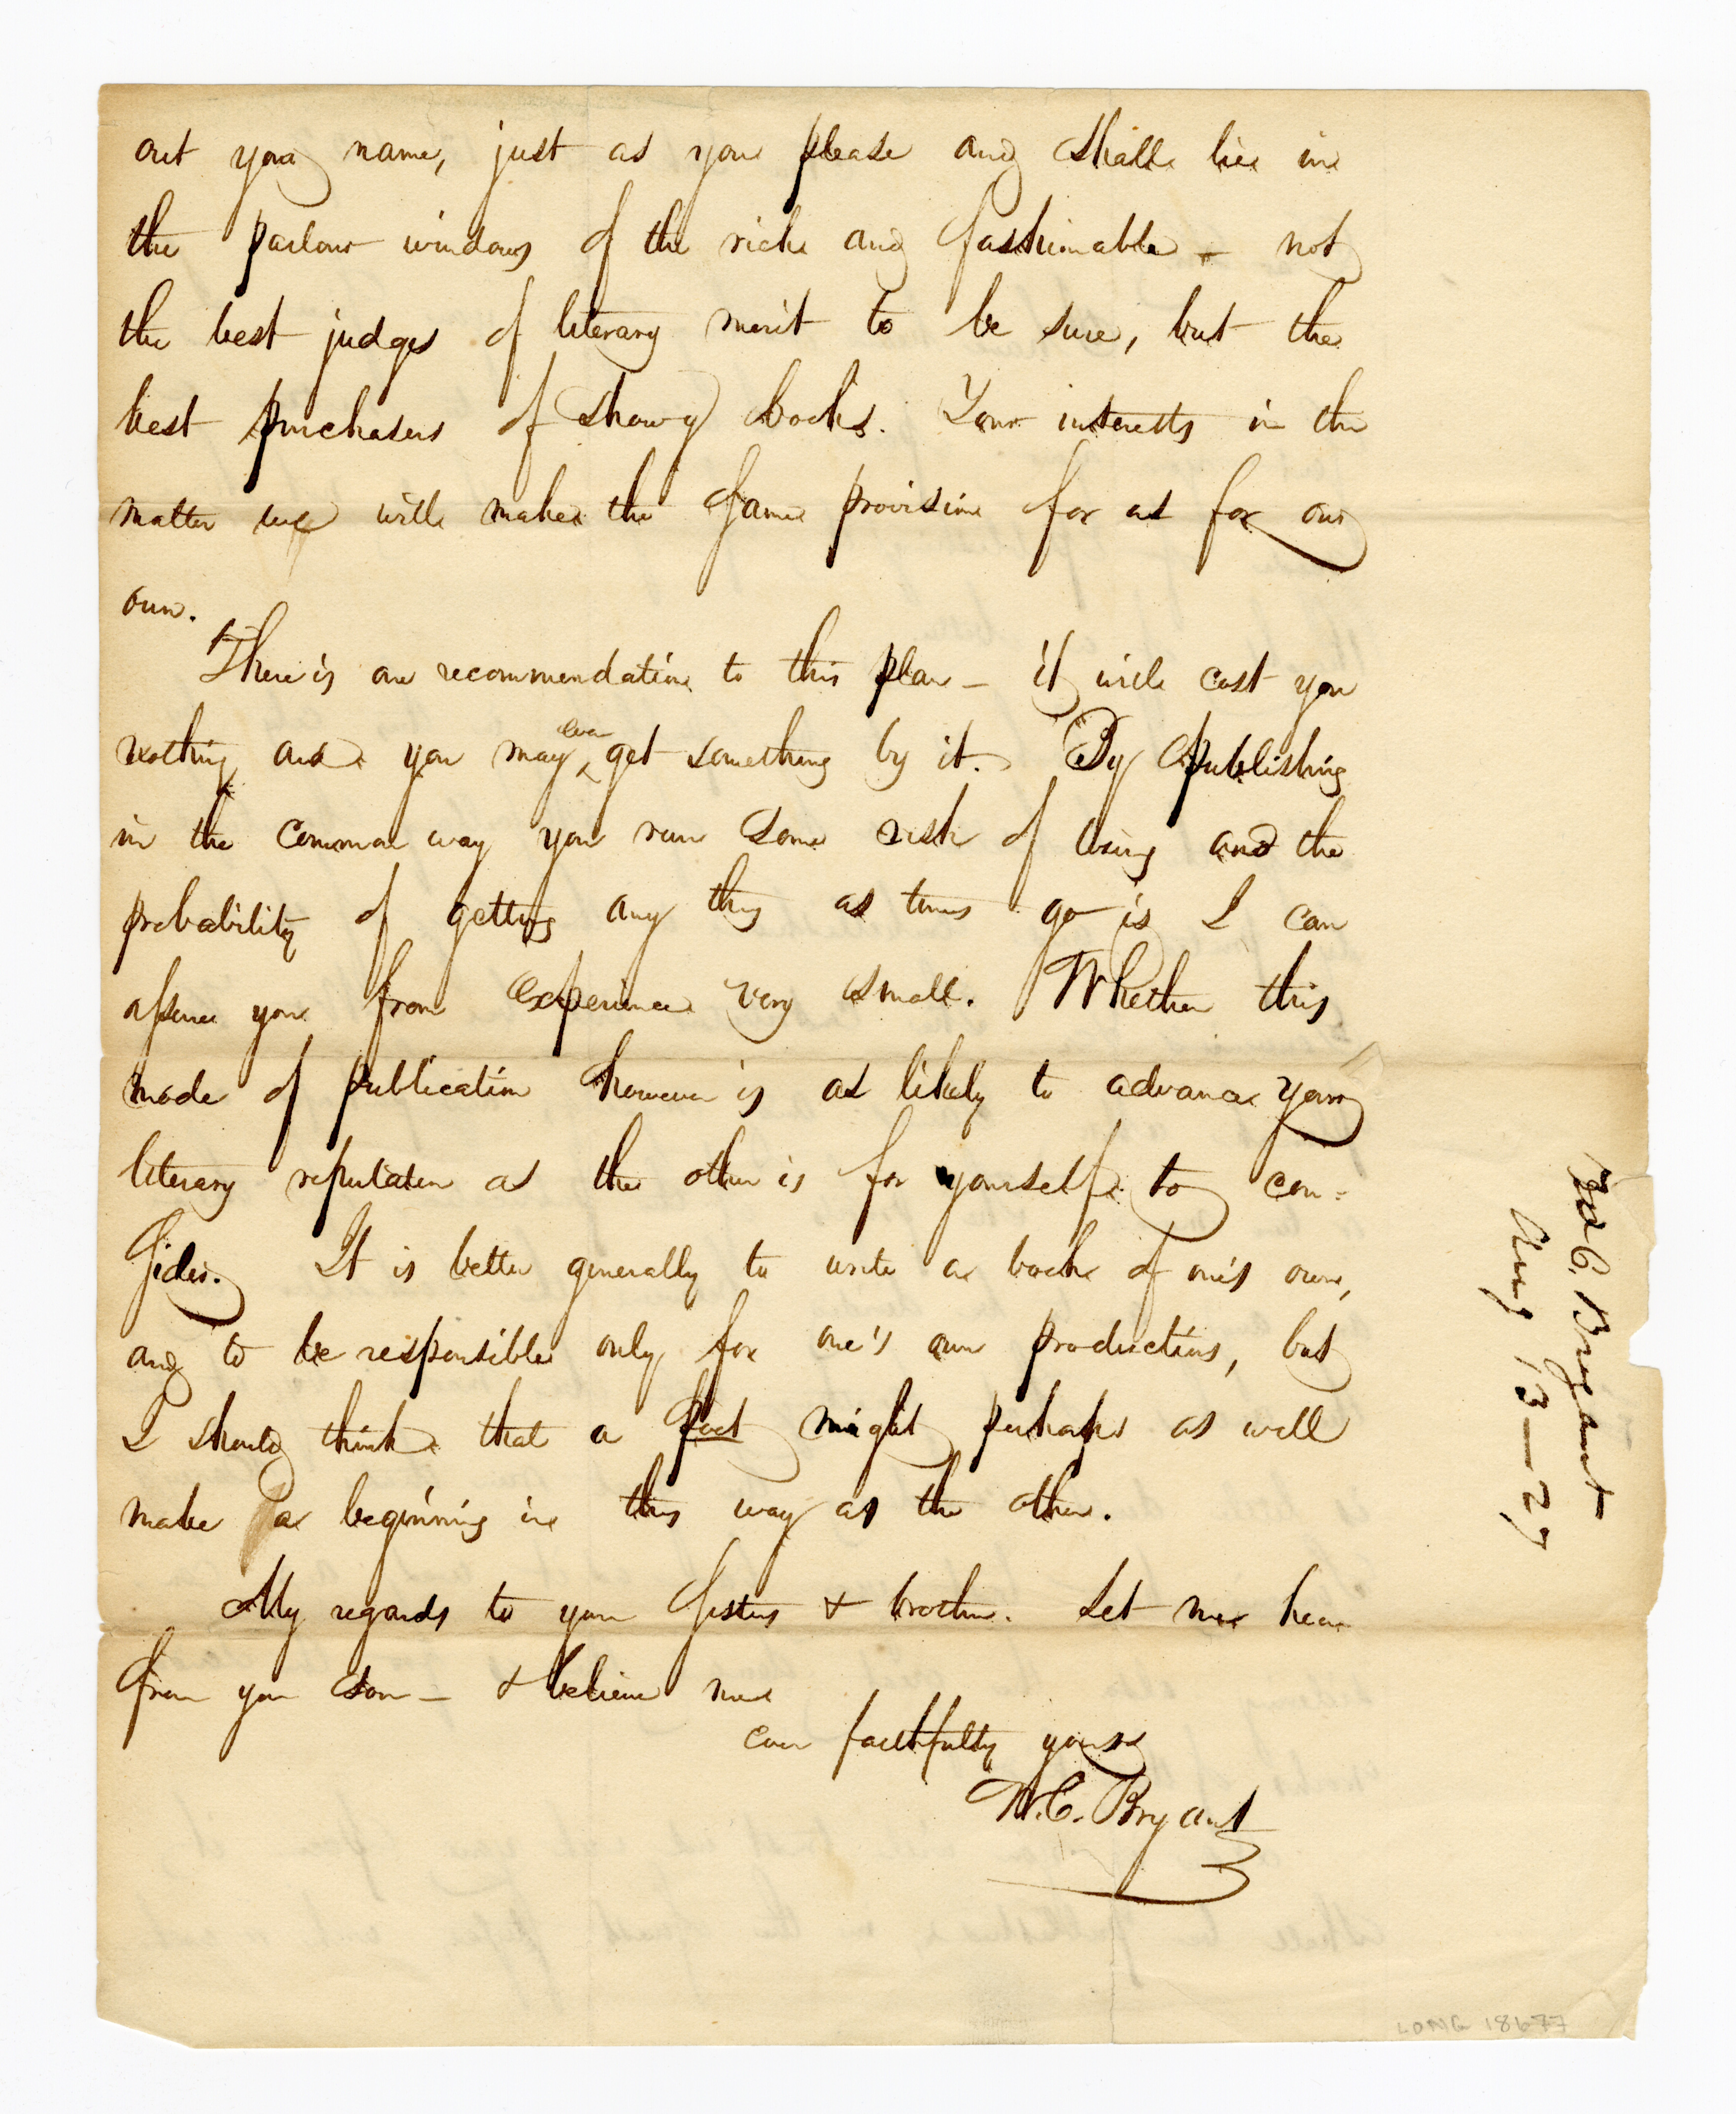 out your name, just as you please and shall lie in
the parlour windows of the rich and fashionable – not
the best judges of literary merit to be sure, but the
best purchasers of showy books. Your interests in the
matter we will make the same provision for as for our
own.
There is one recommendation to this plan – it will cost you
nothing and you may even get something by it. By publishing
in the common way you run some risk of losing and the
probability of getting any thing as times go is I can
assure you from experience very small. Whether this
mode of publication however is as likely to advance your
literary reputation as the other is for yourself to con=
sider. It is better generally to write a book of one's own,
and to be responsible only for one's own productions, but
I should think that a Poet might perhaps as well
make a beginning in this way as the other.
My regards to your sisters & brother. Let me hear
from you soon – & believe me
ever faithfully yours
W. C. Bryant
W C. Bryant
Aug 13 – 27
LONG 18677